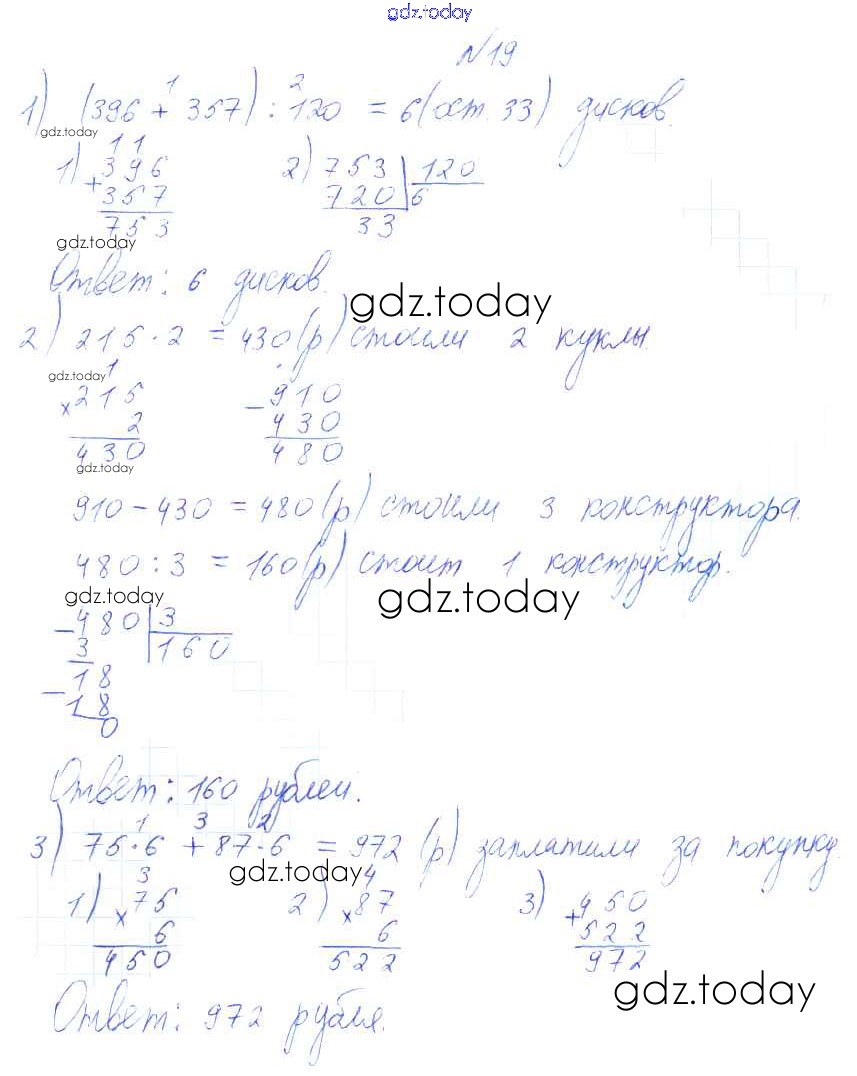 gdz.today
№19
1) (396 + 357) : 120 = 6(ост. 33) дисков.
1 2
gdz.today
1) 396 + 357 = 753
11
2) 753 | 120
720 | 6
33
gdz.today
Ответ: 6 дисков.
gdz.today
2) 215 · 2 = 430(р) стоили 2 куклы.
gdz.today
1
× 215 - 910
2 430
430 480
gdz.today
910 - 430 = 480(р) стоили 3 конструктора.
480 : 3 = 160(р) стоит 1 конструктор.
gdz.today
gdz.today
- 480 | 3
3 | 160
- 18
18
0
Ответ: 160 рублей.
1 3 2
3) 75·6 + 87·6 = 972 (р) заплатили за покупку.
gdz.today
3 4
1) × 75 2) × 87 3) + 450
6 6 522
450 522 972
gdz.today
Ответ: 972 рубля.